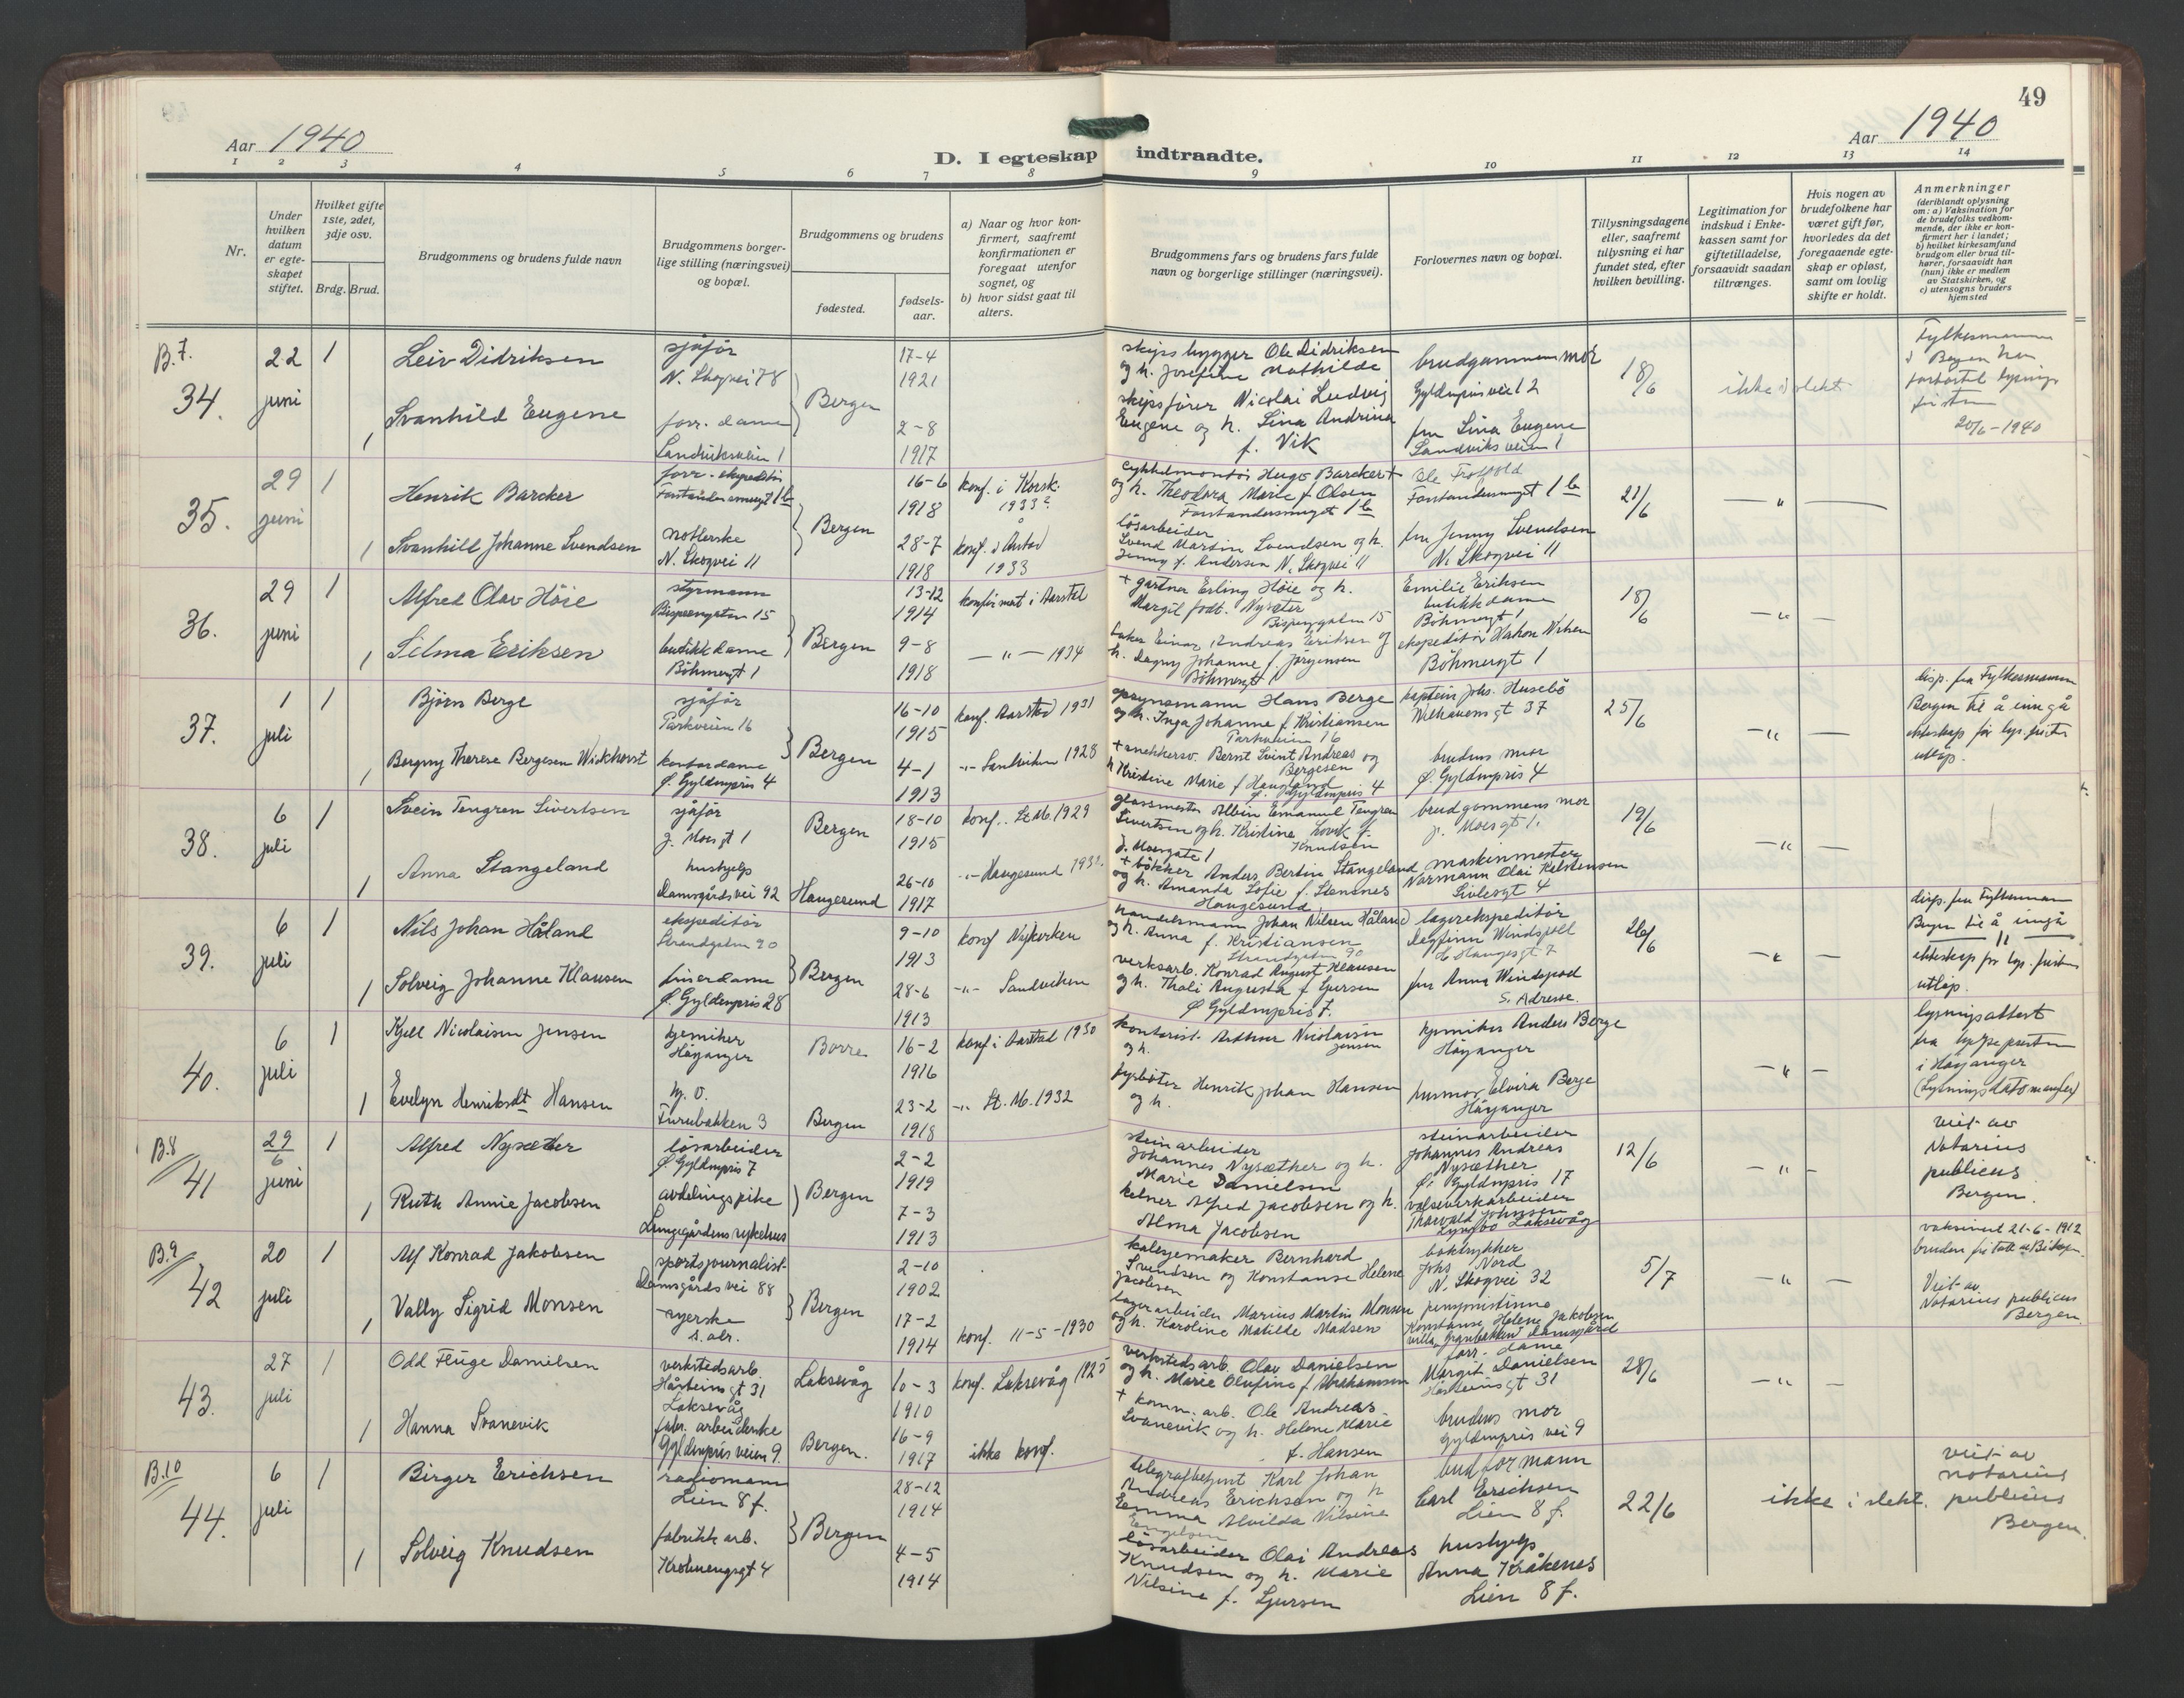 49
Aar 1940
Aar 1940
D. I egteskap indtraadte.
1 2 3 4 5 6 7 8 9 10 11 12 13 14
Nr.
Under hvilken datum er egteskapet stiftet.
Hvilket gifte 1ste, 2det, 3dje osv.
Brdg. Brud.
Brudgommens og brudens fulde navn
Brudgommens borgerlige stilling (næringsvei) og bopæl.
Brudgommens og brudens
fødested.
fødselsaar.
a) Naar og hvor konfirmert, saafremt konfirmationen er foregaat utenfor sognet, og
b) hvor sidst gaat til alters.
Brudgommens fars og brudens fars fulde navn og borgerlige stillinger (næringsvei).
Forlovernes navn og bopæl.
Tillysningsdagene eller, saafremt tillysning ei har fundet sted, efter hvilken bevilling.
Legitimation for indskud i Enkekassen samt for giftetilladelse, forsaavidt saadan tiltrænges.
Hvis nogen av brudefolkene har været gift før, hvorledes da det foregaaende egteskap er opløst, samt om lovlig skifte er holdt.
Anmerkninger
(deriblandt oplysning om: a) Vaksination for de brudefolks vedkommende, der ikke er konfirmert her i landet;
b) hvilket kirkesamfund brudgom eller brud tilhører, forsaavidt han (hun) ikke er medlem av Statskirken, og
c) utensogns bruders hjemsted
B.7.
34.
22 juni
1
Leiv Didriksen
sjåfør
N. Skogvei 78
17-4
1921
1
Svanhild Eugene
forr. dame
Sandviksveien 1
Bergen
2-8
1917
skipsbygger Ole Didriksen
og h. Josefine Mathilde
skipsfører Nicolai Ludvig
Eugene og h. Lina Andrina
f. Vik
brudgommens mor
Gyldenprisvei 12
fru Lina Eugene
Sandviksveien 1
18/6
ikke i slekt
Fylkesmannen
i Bergen har
20/6-1940
35.
29 juni
1
Henrik Barcker
forr. ekspeditør
Forstandersmuget 1b
16-6
1918
konf. i Korsk.
1933
1
Svanhill Johanne Svendsen
N. Skogvei 11
Bergen
28-7
1918
konf. i Årstad
1933
cykkelmontør Hugo Barckert
og h. Theodora Marie f. Olsen
Forstandersmuget 1b
løsarbeider
Svend Martin Svendsen og h.
Jenny f. Andersen N. Skogvei 11
Forstandersmuget 1b
fru Jenny Svendsen
N. Skogvei 11
21/6
— " —
36.
29 juni
1
Alfred Olav Høie
styrmann
Bispengaten 15
13-12
1914
konfirmert i Aarstad
1
Selma Eriksen
butikkdame
Böhmergt 1
Bergen
9-8
1918
— " — 1934
+ gartner Erling Høie og h.
Margit født. Nysæter
Bispengaten 15
baker Einar Andreas Eriksen og
h. Dagny Johanne f. Jørgensen
Böhmergt 1
Emilie Eriksen
butikkdame
Böhmergt 1
ekspeditør Hakon Nilsen
Böhmergt 1
18/6
— " —
37.
1 juli
1
Bjørn Berge
sjåfør
Parkveien 16
16-10
1915
konf. Aarstad 1931
1
Bergny Therese Bergesen Wickhorst
kontordame
Ø. Gyldenpris 4
Bergen
4-1
1913
-"- Sandviken 1928
opsynsmann Hans Berge
og h. Inga Johanne f. Kristiansen
Parkveien 16
+ snekkersv. Bernt Svint Andreas og
Bergesen
h Kristine Marie f Haugland
Ø. Gyldenpris 4
kaptein Johs. Husebö
Welhavensgt 37
brudens mor
Ø. Gyldenpris 4
25/6
— " —
disp. fra Fylkesmannen
Bergen til å inngå
ekteskap før lys. fristen
utløp.
38.
6 juli
1
Svein Tengren Sivertsen
sjåfør
J. Moesgt 1
Bergen
18-10
1915
konf. St. M. 1929
1
Anna Stangeland
hushjelp
Damsgårdsvei 92
Haugesund
26-10
1917
-"- Haugesund
glassmester Albin Emanuel Tengren
Sivertsen og h. Kristine Lovik f.
Knudsen
J. Moesgate 1
+ bøkker Anders Bertin Stangeland
og h. Amanda Sofie f. Stennes
Haugesund
brudgommens mor
J. Moesgt 1.
maskinmester
Normann Olai Kalstensen
Sivlesgt 4
19/6
— " —
39.
6 juli
1
Nils Johan Håland
ekspeditör
Strandgaten 90
9-10
1913
konf Nykirken
1
Solveig Johanne Klausen
Ø. Gyldenpris 28
Bergen
28-6
1913
-"- Sandviken
handelsmann Johan Nilsen Håland
og h. Anna f. Kristiansen
Strandgaten 90
verksarb. Konrad August Klausen
og h. Thali Augusta f. Gjersen
Ø. Gyldenpris 7.
lagerekspeditör
Dagfinn Windspoll
H. Haugesgt 7
fru Anna Windspod
S. Adresse.
26/6
— " —
disp. fra Fylkesmann
Bergen til å inngå
ekteskap før lys. fristen
utløp.
40.
6 juli
1
Kjell Nicolaisen Jensen
kjemiker
Høyanger
Borre
16-2
1916
konf. i Aarstad 1930
1
Evelyn Henriksdt Hansen
hj. d.
Furubakken 3
Bergen
23-2
1918
-"- St. M. 1932
kontorist. Arthur Nicolaisen
Jensen
og h.
fyrbøter Henrik Johan Hansen
og h.
kjemiker Anders Berge
Høyanger
husmor Elvira Berge
Høyanger
— " —
lysningsattest
fra hjelpepresten
i Høyanger
(Lysningsdato mangler)
B.8
41
29/6 juni
1
Alfred Nysæther
løsarbeider
Ø. Gyldenpris 7
2-2
1919
1
Ruth Annie Jacobsen
avdelingspike
Lungegårdens sykehus
Bergen
7-3
1913
steinarbeider
Johannes Nysæther og h.
Marie Danielsen
kelner Alfred Jacobsen og h.
Alma Jacobsen
steinarbeider
Johannes Andreas
Nysæther
Ø. Gyldenpris 17
valseverkarbeider
Thorvald Johnsen
Lyngbo Laksevåg
12/6
— " —
viet av
Notarius
publicus
Bergen.
B.9
42
20 juli
1
Alf Konrad Jakobsen
sportsjournalist
Damsgårdsvei 88
2-10
1902
1
Vally Sigrid Monsen
syerske
s. adr.
Bergen
17-2
1914
konf. 11-5-1930
kalesjemaker Bernhard
Svendsen og Konstanse Helene
Jacobsen
lagerarbeider Marius Martin Monsen
og h. Karoline Matilde Madsen
boktrykker
Johs Nord
N. Skogvei 32
pensjonistinne
Konstanse Helene Jakobsen
villa Granbakken Damsgård
5/7
— " —
vaksinert 21-6-1912
Viet av
Notarius publicus
Bergen
43.
27 juli
1
Odd Fluge Danielsen
verkstedsarb.
Hårteinsgt 31
Laksevåg
Laksevåg
10-3
1910
konf. Laksevåg 1925
1
Hanna Svanevik
fabr. arbeiderske
Gyldenprisveien 9.
Bergen.
16-9
1917
ikke konf.
verkstedsarb. Olav Danielsen
og h. Marie Olufine f. Abrahamsen
+ komm. arb. Ole Andreas
Svanevik og h. Helene Marie
f. Hansen
forr. dame
Margit Danielsen
Hårteinsgt 31
brudens mor
Gyldenprisvei 9
28/6
— " —
B.10
44.
6 juli
1
Birger Erichsen
radiomann
Lien 8 f.
28-12
1914
1
Solveig Knudsen
fabrikk arb.
Krohnengsgt 4
Bergen
4-5
1914
telegrafbetjent Karl Johan
Andreas Erichsen og h
Emma Alvilda Nilsine
Engelsen
løsarbeider Olai Andreas
Knudsen og h. Marie
Nilsine f. Gjersen
budformann
Carl Erichsen
Lien 8 f.
hushjelp
Anna Kråkenes
Lien 8 f.
22/6
ikke i slekt.
viet av
notarius
publicus
Bergen.